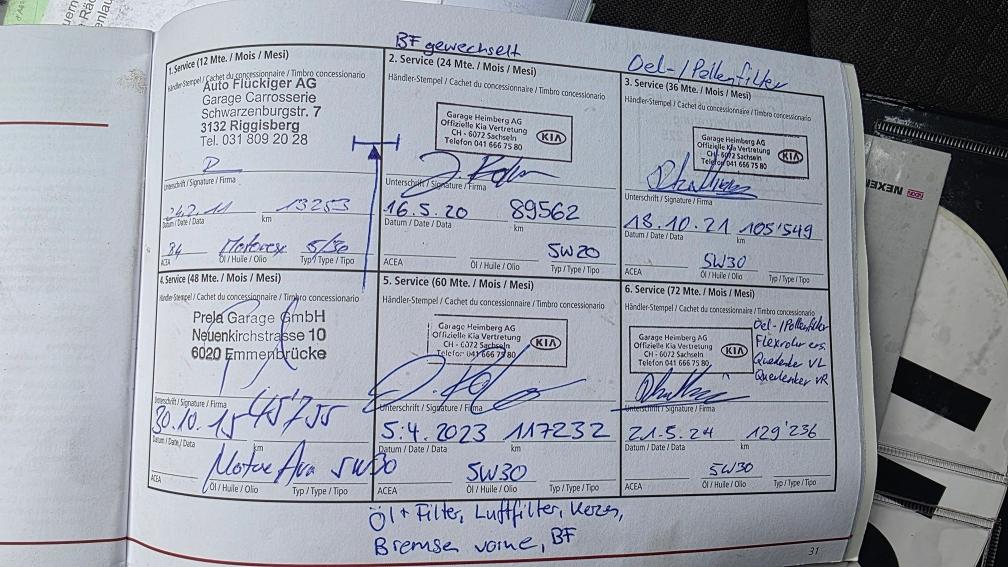 BF gewechselt
Oel-/Pollenfilter
1. Service (12 Mte. / Mois / Mesi)
Händler-Stempel / Cachet du concessionnaire / Timbro concessionario
Auto Flückiger AG
Garage Carrosserie
Schwarzenburgstr. 7
3132 Riggisberg
Tel. 031 809 20 28
Unterschrift / Signature / Firma
24.2.11 13253
Datum / Date / Data km
Motorex 5/30
ACEA Öl / Huile / Olio Typ / Type / Tipo
2. Service (24 Mte. / Mois / Mesi)
Händler-Stempel / Cachet du concessionnaire / Timbro concessionario
Garage Heimberg AG
Offizielle Kia Vertretung
CH - 6072 Sachseln
Telefon 041 666 75 80
KIA
Unterschrift / Signature / Firma
16.5.20 89562
Datum / Date / Data km
5W20
ACEA Öl / Huile / Olio Typ / Type / Tipo
3. Service (36 Mte. / Mois / Mesi)
Händler-Stempel / Cachet du concessionnaire / Timbro concessionario
Garage Heimberg AG
Offizielle Kia Vertretung
CH - 6072 Sachseln
Telefon 041 666 75 80
KIA
Unterschrift / Signature / Firma
18.10.21 105'549
Datum / Date / Data km
5W30
ACEA Öl / Huile / Olio Typ / Type / Tipo
4. Service (48 Mte. / Mois / Mesi)
Händler-Stempel / Cachet du concessionnaire / Timbro concessionario
Prela Garage GmbH
Neuenkirchstrasse 10
6020 Emmenbrücke
Unterschrift / Signature / Firma
30.10.15 45'755
Datum / Date / Data km
5W30
ACEA Öl / Huile / Olio Typ / Type / Tipo
5. Service (60 Mte. / Mois / Mesi)
Händler-Stempel / Cachet du concessionnaire / Timbro concessionario
Garage Heimberg AG
Offizielle Kia Vertretung
CH - 6072 Sachseln
Telefon 041 666 75 80
KIA
Unterschrift / Signature / Firma
5.4.2023 117232
Datum / Date / Data km
5W30
ACEA Öl / Huile / Olio Typ / Type / Tipo
6. Service (72 Mte. / Mois / Mesi)
Händler-Stempel / Cachet du concessionnaire / Timbro concessionario
Garage Heimberg AG
Offizielle Kia Vertretung
CH - 6072 Sachseln
Telefon 041 666 75 80
KIA
Oel-/Pollenfilter
Flexrohr ers.
Querlenker VL
Querlenker VR
Unterschrift / Signature / Firma
21.5.24 129'236
Datum / Date / Data km
5W30
ACEA Öl / Huile / Olio Typ / Type / Tipo
Öl + Filter, Luftfilter, Kerzen,
Bremsen vorne, BF
31
NEXEN